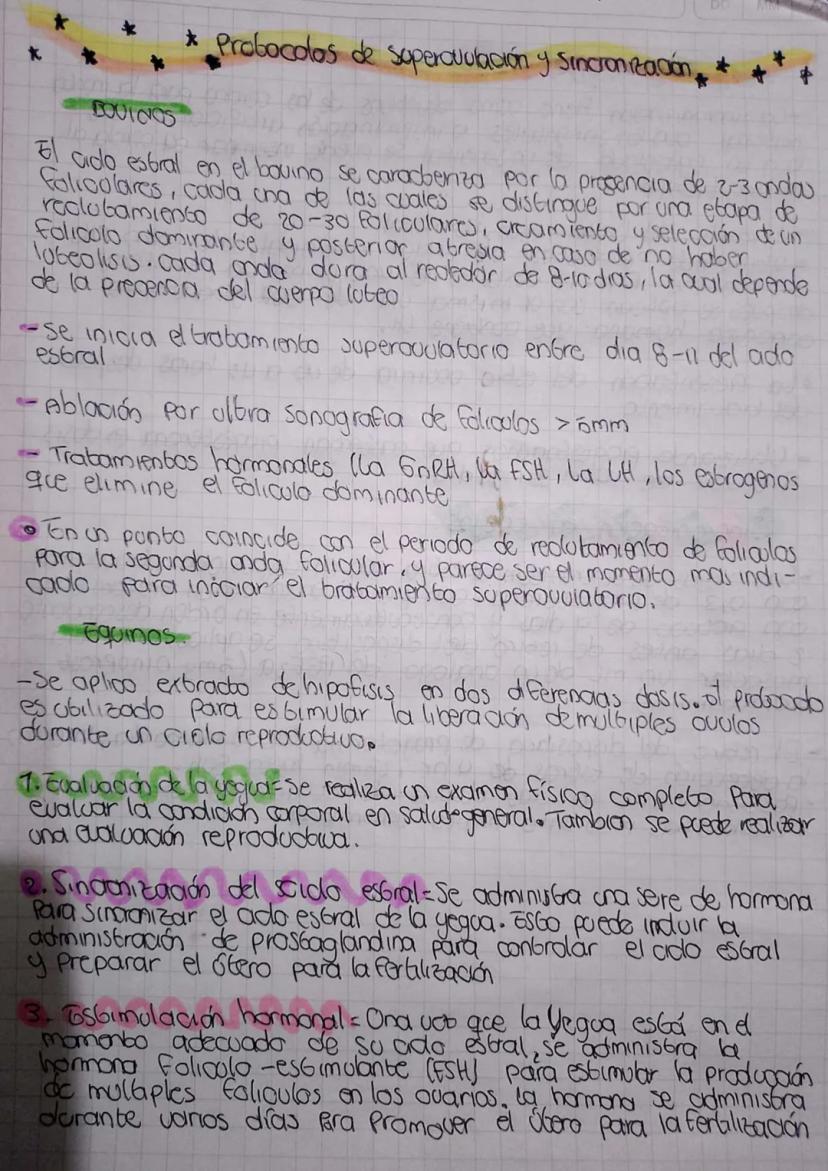 Protocolos de superovulación y sincronización
BOVINOS
El ciclo estral en el bovino se caracteriza por la presencia de 2-3 ondas
foliculares, cada una de las cuales se distingue por una etapa de
reclutamiento de 20-30 foliculares, crecimiento y selección de un
folículo dominante y posterior atresia en caso de no haber
luteolisis. Cada onda dura al rededor de 8-10 dias, la cual depende
de la precencia del cuerpo luteo
- Se inicia el tratamiento superovulatorio entre dia 8-11 del ciclo
estral
- Ablación por ultra sonografia de folículos > 5mm
- Tratamientos hormonales (La GnRH, la FSH, La LH, los estrogenos
que elimine el folículo dominante
En un punto coincide con el periodo de reclutamiento de folículos
para la segunda onda folicular, y parece ser el momento mas indi-
cado para iniciar el tratamiento superovulatorio.
Equinos.
- Se aplica extracto de hipofisis en dos diferencias dosis. el protocolo
es utilizado para estimular la liberación de multiples ovulos
durante un ciclo reproductivo.
1. Evaluación de la yegua= Se realiza un examen físico completo Para
evaluar la condición corporal en salud general. Tambien se puede realizar
una evaluación reproductiva.
2. Sincronización del ciclo estral= Se administra una sere de hormona
Para sincronizar el ciclo estral de la yegua. Esto puede incluir la
administración de prostaglandina para controlar el ciclo estral
y preparar el útero para la fertilización
3. Estimulación hormonal= Una vez que la yegua está en el
momento adecuado de su ciclo estral, se administra la
hormona folículo-estimulante (FSH) para estimular la producción
de multiples folículos en los ovarios. La hormona se administra
durante varios días para promover el útero para la fertilización